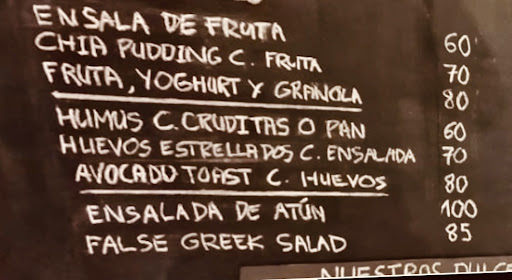 ENSALA DE FRUTA 60
CHIA PUDDING C. FRUTA 70
FRUTA, YOGHURT Y GRANOLA 80
HUMUS C. CRUDITAS O PAN 60
HUEVOS ESTRELLADOS C. ENSALADA 70
AVOCADO TOAST C. HUEVOS 80
ENSALADA DE ATÚN 100
FALSE GREEK SALAD 85
NUESTROS DULCE